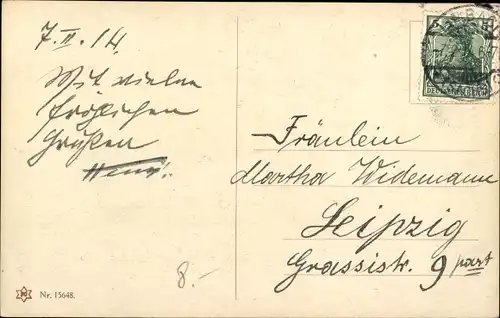 7.II.14.
Mit vielen
fröhlichen
Grüßen
8.-
Nr. 15648.
5
DEUTSCHES REICH
Fräulein
Martha Widemann
Leipzig
Grassistr. 9 part